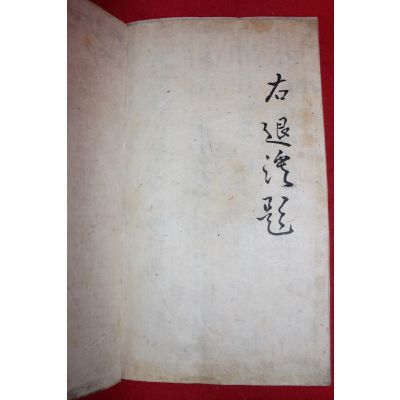 右退溪題